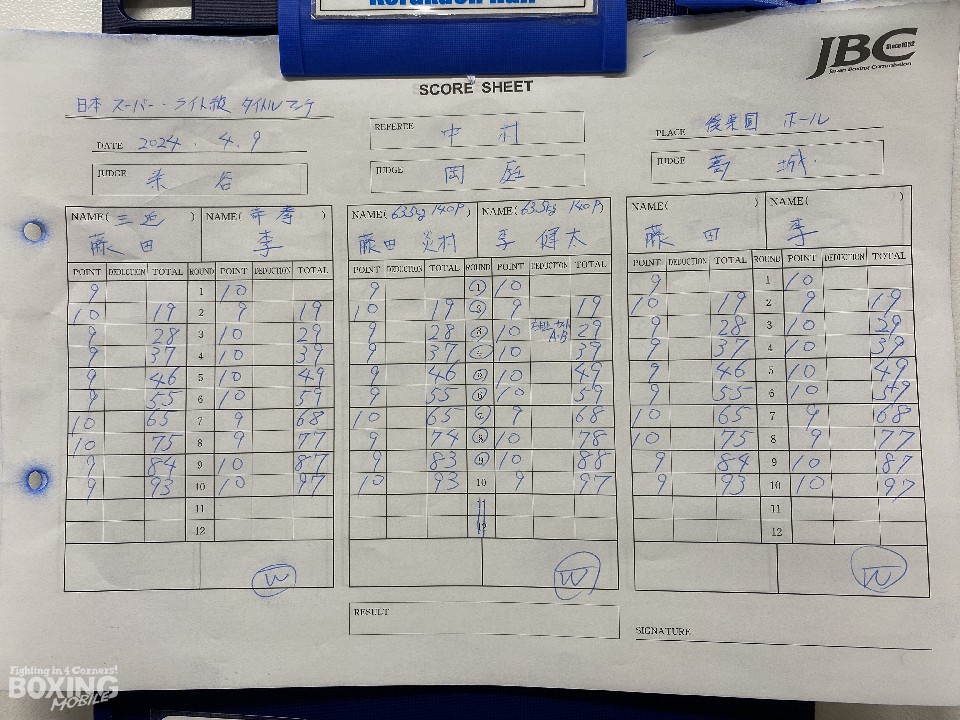 Korakuen Hall
JBC
Japan Boxing Commission
SCORE SHEET
日本 スーパー・ライト級 タイトルマッチ
DATE 2024. 4. 9
REFEREE 中村
PLACE 後楽園 ホール
JUDGE 染谷
JUDGE 岡庭
JUDGE 葛城
NAME( 三迫 ) NAME( 帝拳 )
藤田 李
POINT DEDUCTION TOTAL ROUND POINT DEDUCTION TOTAL
9 1 10
10 19 2 9 19
9 28 3 10 29
9 37 4 10 39
9 46 5 10 49
9 55 6 10 59
10 65 7 9 68
10 75 8 9 77
9 84 9 10 87
9 93 10 10 97
11
12
W
NAME( 63.5kg 140P) NAME( 63.5kg 140P)
藤田 炎村 李 健太
POINT DEDUCTION TOTAL ROUND POINT DEDUCTION TOTAL
9 1 10
10 19 2 9 19
9 28 3 10 29
9 37 4 10 39
9 46 5 10 49
9 55 6 10 59
10 65 7 9 68
9 74 8 10 78
9 83 9 10 88
10 93 10 9 97
11
12
W
RESULT
NAME( ) NAME( )
藤田 李
POINT DEDUCTION TOTAL ROUND POINT DEDUCTION TOTAL
9 1 10
10 19 2 9 19
9 28 3 10 29
9 37 4 10 39
9 46 5 10 49
9 55 6 10 59
10 65 7 9 68
10 75 8 9 77
9 84 9 10 87
9 93 10 10 97
11
12
W
SIGNATURE
Fighting in 4 Corners!
BOXING
MOBILE